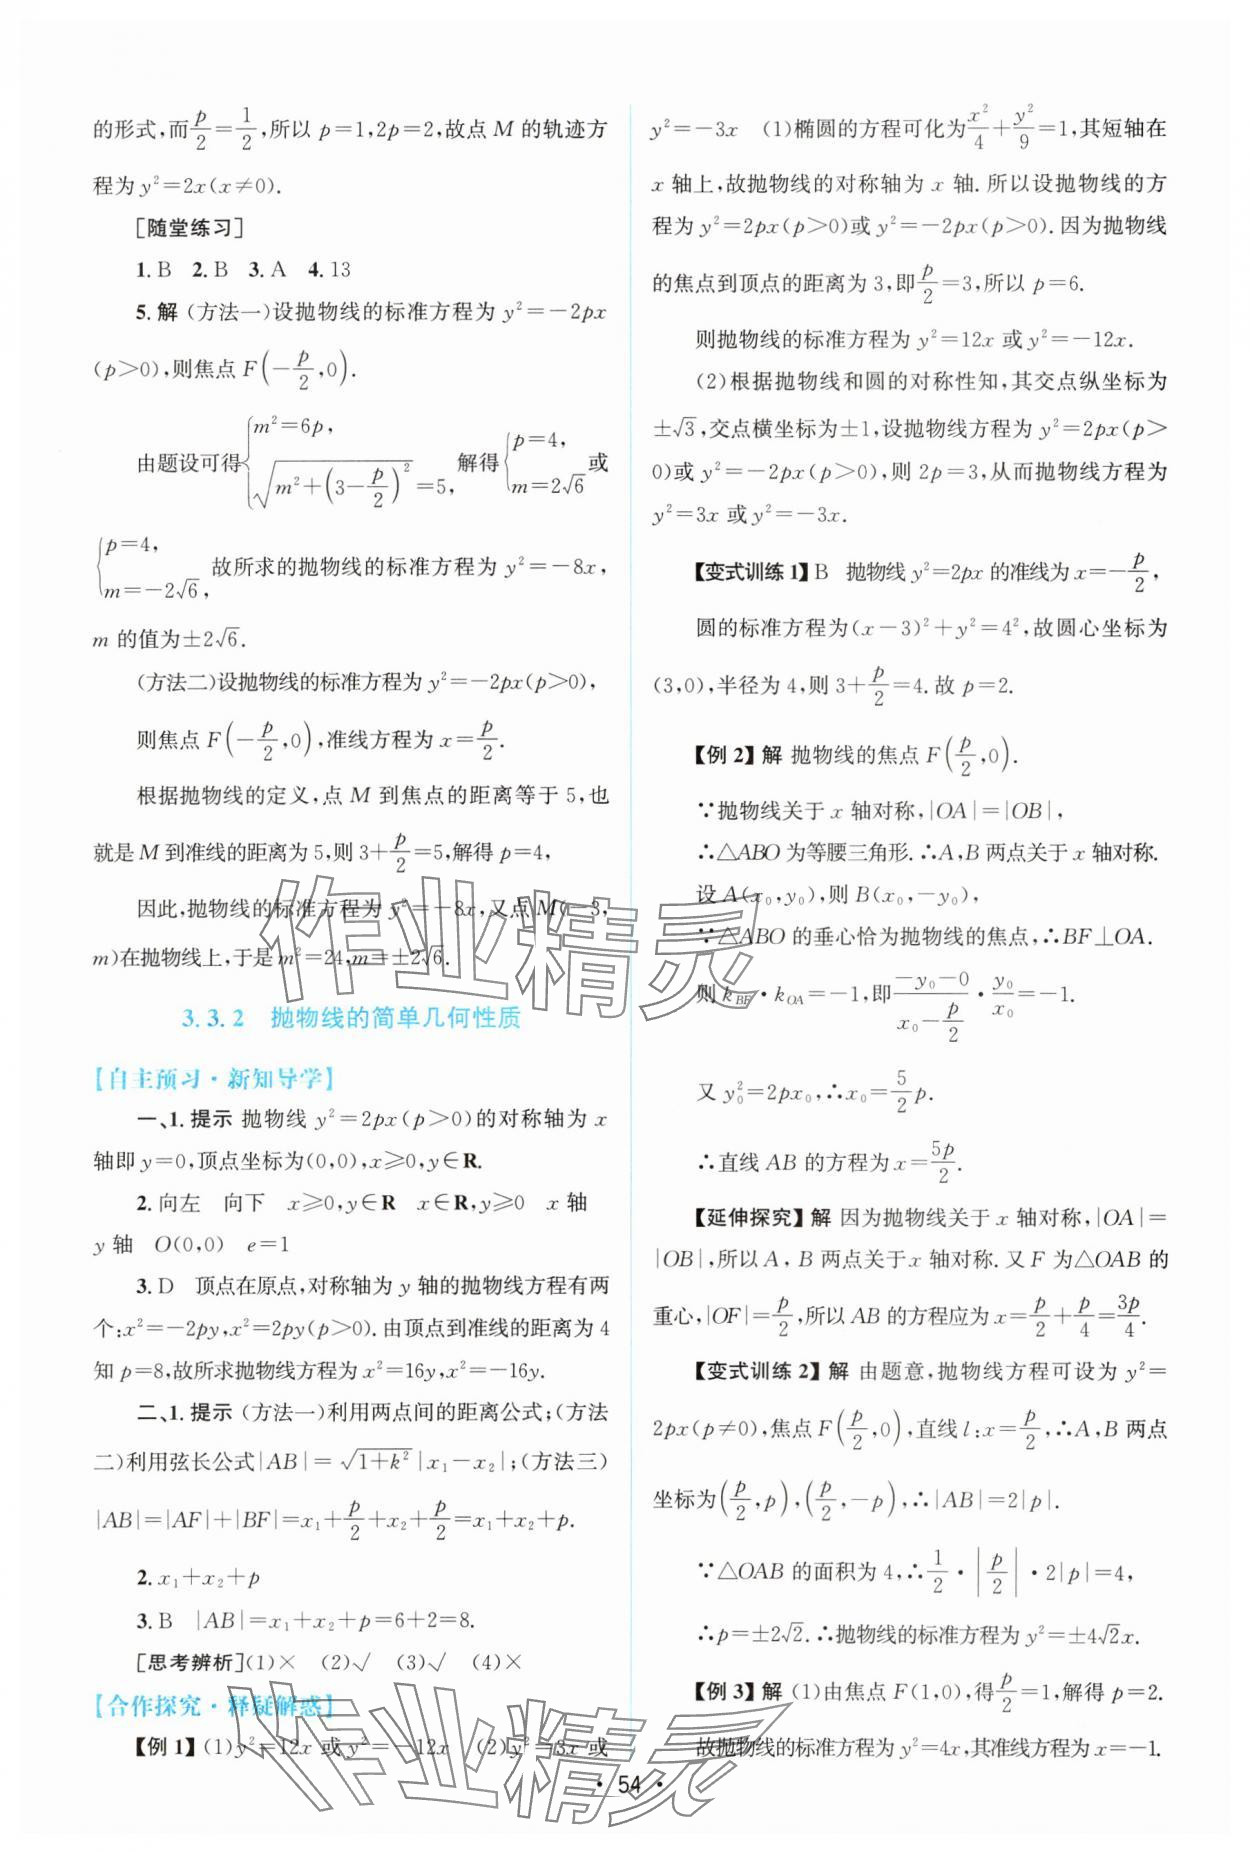 的形式,而p/2=1/2,所以 p=1,2p=2,故点 M 的轨迹方
程为 y²=2x(x≠0).
[随堂练习]
1.B 2.B 3.A 4.13
5.解 (方法一)设抛物线的标准方程为 y²=-2px
(p>0),则焦点 F(-p/2,0).
由题设可得{m²=6p, √(m²+(3-p/2)²)=5, 解得{p=4, m=2√6 或
{p=4, m=-2√6, 故所求的抛物线的标准方程为 y²=-8x,
m 的值为±2√6.
(方法二)设抛物线的标准方程为 y²=-2px(p>0),
则焦点 F(-p/2,0),准线方程为 x=p/2.
根据抛物线的定义,点 M 到焦点的距离等于 5,也
就是 M 到准线的距离为 5,则 3+p/2=5,解得 p=4,
因此,抛物线的标准方程为 y²=-8x,又点 M(-3,
m)在抛物线上,于是 m²=24,m=±2√6.
3.3.2 抛物线的简单几何性质
【自主预习·新知导学】
一、1.提示 抛物线 y²=2px(p>0)的对称轴为 x
轴即 y=0,顶点坐标为(0,0),x≥0,y∈R.
2.向左 向下 x≥0,y∈R x∈R,y≥0 x 轴
y 轴 O(0,0) e=1
3.D 顶点在原点,对称轴为 y 轴的抛物线方程有两
个:x²=-2py,x²=2py(p>0).由顶点到准线的距离为 4
知 p=8,故所求抛物线方程为 x²=16y,x²=-16y.
二、1.提示 (方法一)利用两点间的距离公式;(方法
二)利用弦长公式|AB|=√(1+k²)|x₁-x₂|;(方法三)
|AB|=|AF|+|BF|=x₁+p/2+x₂+p/2=x₁+x₂+p.
2.x₁+x₂+p
3.B |AB|=x₁+x₂+p=6+2=8.
[思考辨析](1)× (2)√ (3)√ (4)×
【合作探究·释疑解惑】
【例 1】(1)y²=12x 或 y²=-12x (2)y²=3x 或
y²=-3x (1)椭圆的方程可化为x²/4+y²/9=1,其短轴在
x 轴上,故抛物线的对称轴为 x 轴.所以设抛物线的方
程为 y²=2px(p>0)或 y²=-2px(p>0).因为抛物线
的焦点到顶点的距离为 3,即p/2=3,所以 p=6.
则抛物线的标准方程为 y²=12x 或 y²=-12x.
(2)根据抛物线和圆的对称性知,其交点纵坐标为
±√3,交点横坐标为±1,设抛物线方程为 y²=2px(p>
0)或 y²=-2px(p>0),则 2p=3,从而抛物线方程为
y²=3x 或 y²=-3x.
【变式训练 1】B 抛物线 y²=2px 的准线为 x=-p/2,
圆的标准方程为(x-3)²+y²=4²,故圆心坐标为
(3,0),半径为 4,则 3+p/2=4.故 p=2.
【例 2】解 抛物线的焦点 F(p/2,0).
∵抛物线关于 x 轴对称,|OA|=|OB|,
∴△ABO 为等腰三角形.∴A,B 两点关于 x 轴对称.
设 A(x₀,y₀),则 B(x₀,-y₀),
∵△ABO 的垂心恰为抛物线的焦点,∴BF⊥OA.
则 k_BF·k_OA=-1,即(-y₀-0)/(x₀-p/2)·y₀/x₀=-1.
又 y₀²=2px₀,∴x₀=5/2 p.
∴直线 AB 的方程为 x=5p/2.
【延伸探究】解 因为抛物线关于 x 轴对称,|OA|=
|OB|,所以 A,B 两点关于 x 轴对称.又 F 为△OAB 的
重心,|OF|=p/2,所以 AB 的方程应为 x=p/2+p/4=3p/4.
【变式训练 2】解 由题意,抛物线方程可设为 y²=
2px(p≠0),焦点 F(p/2,0),直线 l:x=p/2,∴A,B 两点
坐标为(p/2,p),(p/2,-p),∴|AB|=2|p|.
∵△OAB 的面积为 4,∴1/2·|p/2|·2|p|=4,
∴p=±2√2.∴抛物线的标准方程为 y²=±4√2x.
【例 3】解 (1)由焦点 F(1,0),得p/2=1,解得 p=2.
故抛物线的标准方程为 y²=4x,其准线方程为 x=-1.
·54·
作业精灵
作业精灵